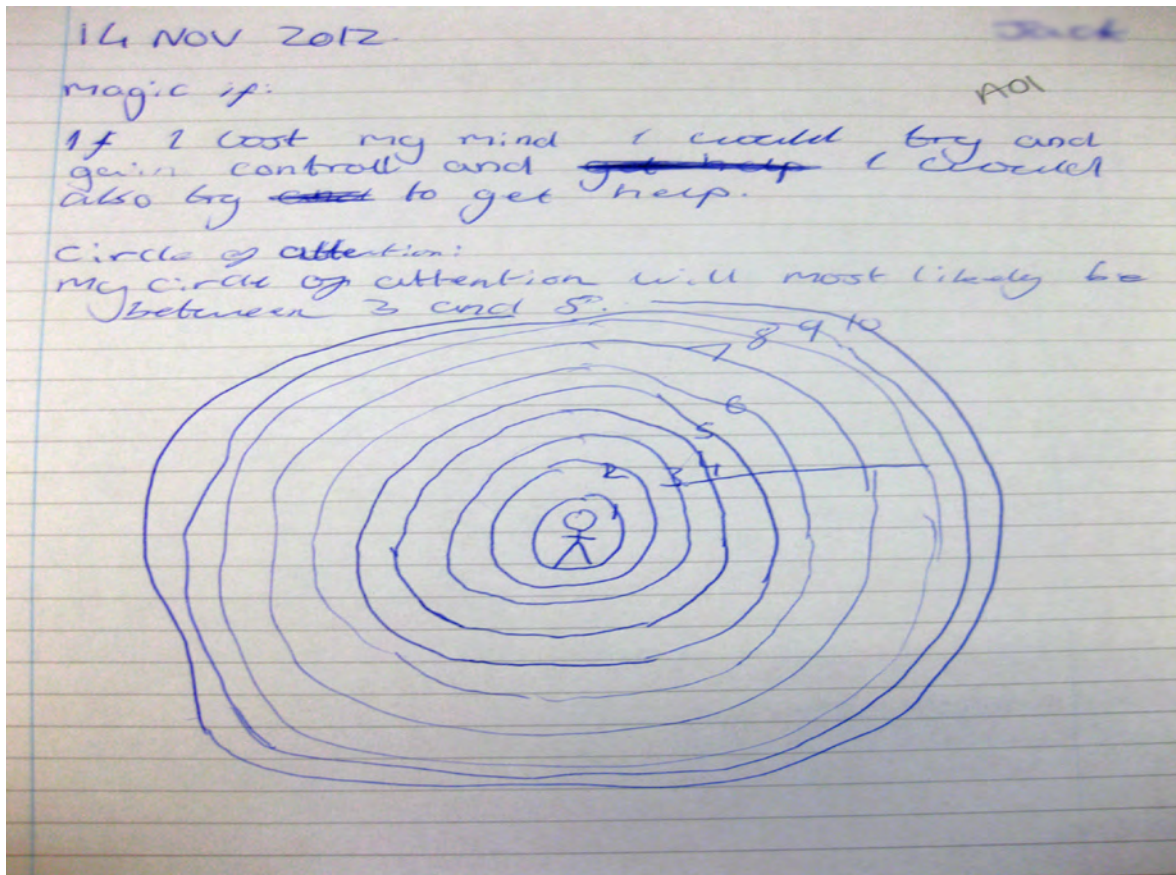 14 NOV 2012
Jack
A01
magic if:
If I lost my mind I would try and
gain controll and get help I would
also try and to get help.
Circle of attention:
my circle of attention will most likely be
between 3 and 5.
10
9
8
7
6
5
4
3
2
1